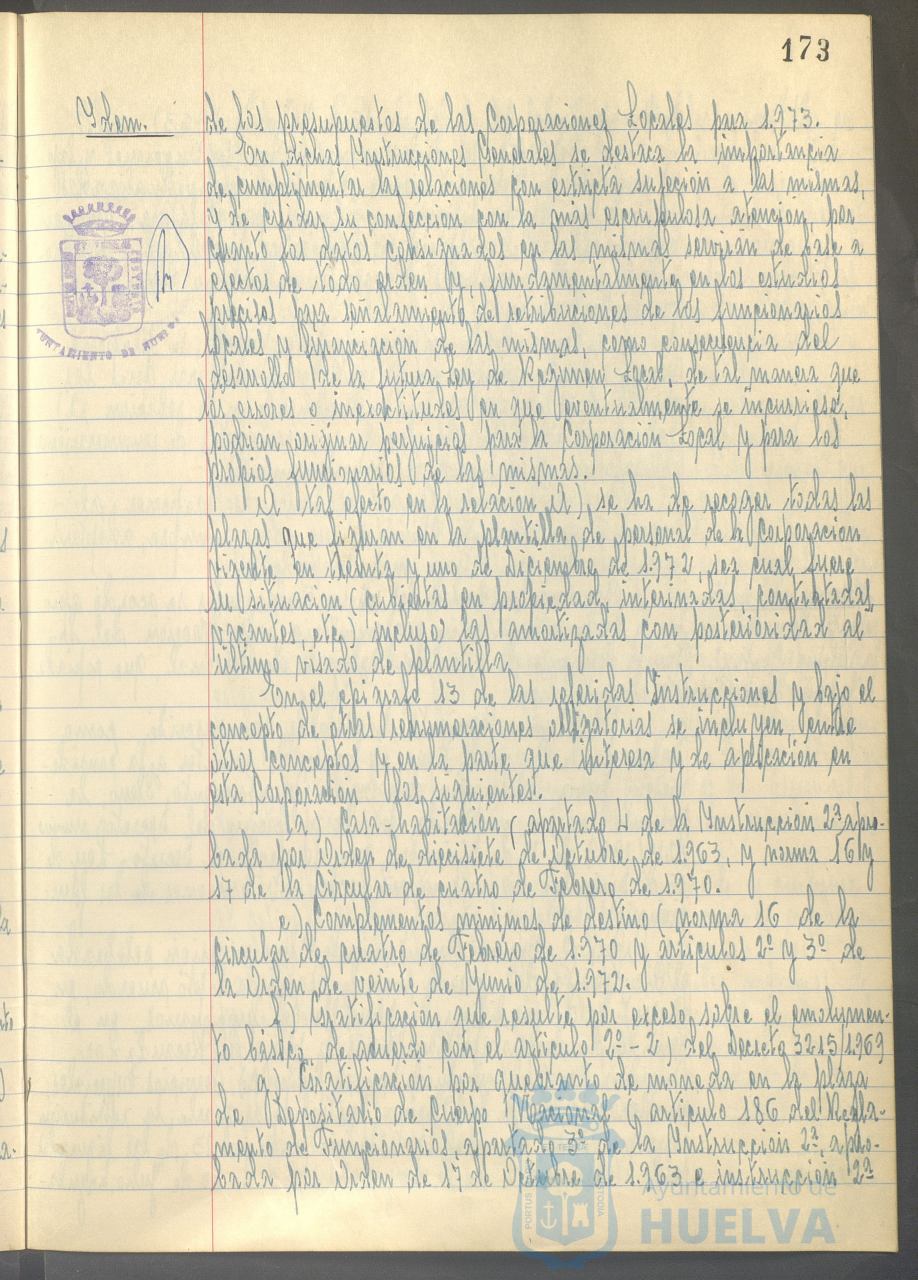 173
Idem.
de los presupuestos de las Corporaciones Locales para 1.973.
En dichas Instrucciones Generales se destaca la importancia
de cumplimentar las relaciones con estricta sujeción a las mismas,
y de cuidar su confección con la más escrupulosa atención, por
cuanto los datos consignados en las mismas servirán de base a
efectos de todo orden y, fundamentalmente, en los estudios
precisos para señalamiento de retribuciones de los funcionarios
locales y financiación de las mismas, como consecuencia del
desarrollo de la futura Ley de Régimen Local, de tal manera que
los errores o inexactitudes en que eventualmente se incurriese,
podrían originar perjuicios para la Corporación Local y para los
propios funcionarios de las mismas.
A tal efecto en la relación A), se ha de recoger todas las
plazas que figuran en la plantilla de personal de la Corporación
vigente en treinta y uno de Diciembre de 1.972, sea cual fuere
su situación (cubiertas en propiedad, interinadas, contratadas,
vacantes, etc.) incluso las amortizadas con posterioridad al
último visado de plantilla.
En el epígrafe 13 de las referidas Instrucciones y bajo el
concepto de otras remuneraciones obligatorias se incluyen, entre
otros conceptos y en la parte que interesa y de aplicación en
esta Corporación los siguientes:
a) Casa-habitación (apartado 4 de la Instrucción 2ª apro-
bada por Orden de diecisiete de Octubre de 1.963, y norma 16 y
17 de la Circular de cuatro de Febrero de 1.970.
e) Complementos mínimos de destino (norma 16 de la
circular de cuatro de Febrero de 1.970 y artículos 2º y 3º de
la Orden de veinte de Junio de 1.972.
f) Gratificación que resulte por exceso sobre el emolumen-
to básico, de acuerdo con el artículo 2º-2) del Decreto 3215/1.969
g) Gratificación por quebranto de moneda en la plaza
de Depositario de Cuerpo Nacional (artículo 186 del Regla-
mento de Funcionarios, apartado 3º de la Instrucción 2ª, apro-
bada por Orden de 17 de Octubre de 1.963 e instrucción 2ª
AYUNTAMIENTO DE HUELVA
PORTUS CUSTODIA
Ayuntamiento de
HUELVA